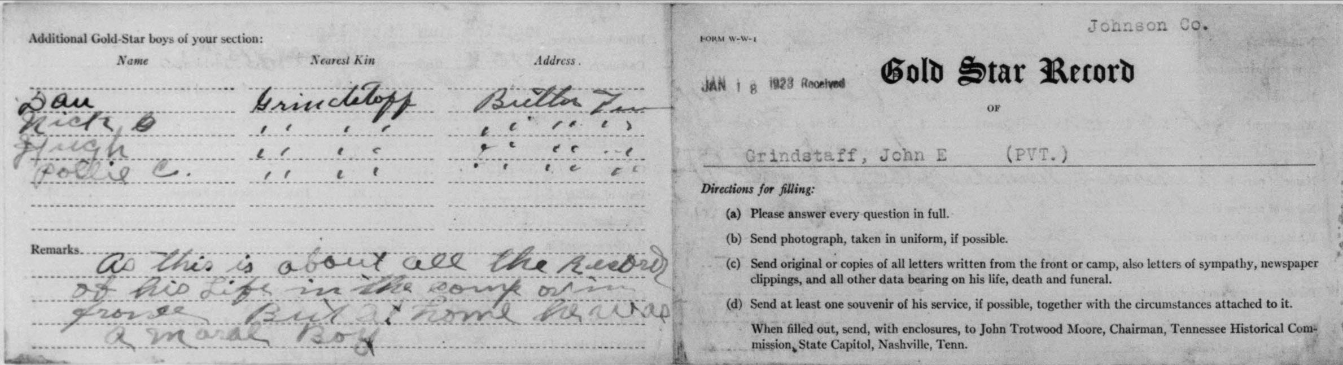 Additional Gold-Star boys of your section:
Name Nearest Kin Address.
Dan Grindstoff Butler Tenn
Nick G " " " " " " "
Hugh " " " " " " "
Pollie C. " " " " " " "
Remarks. As this is about all the Record
of his Life in the camp or in
france But at home he was
a moral Boy
Johnson Co.
FORM W-W-1
JAN 18 1923 Received
Gold Star Record
OF
Grindstaff, John E (PVT.)
Directions for filling:
(a) Please answer every question in full.
(b) Send photograph, taken in uniform, if possible.
(c) Send original or copies of all letters written from the front or camp, also letters of sympathy, newspaper
clippings, and all other data bearing on his life, death and funeral.
(d) Send at least one souvenir of his service, if possible, together with the circumstances attached to it.
When filled out, send, with enclosures, to John Trotwood Moore, Chairman, Tennessee Historical Com-
mission, State Capitol, Nashville, Tenn.